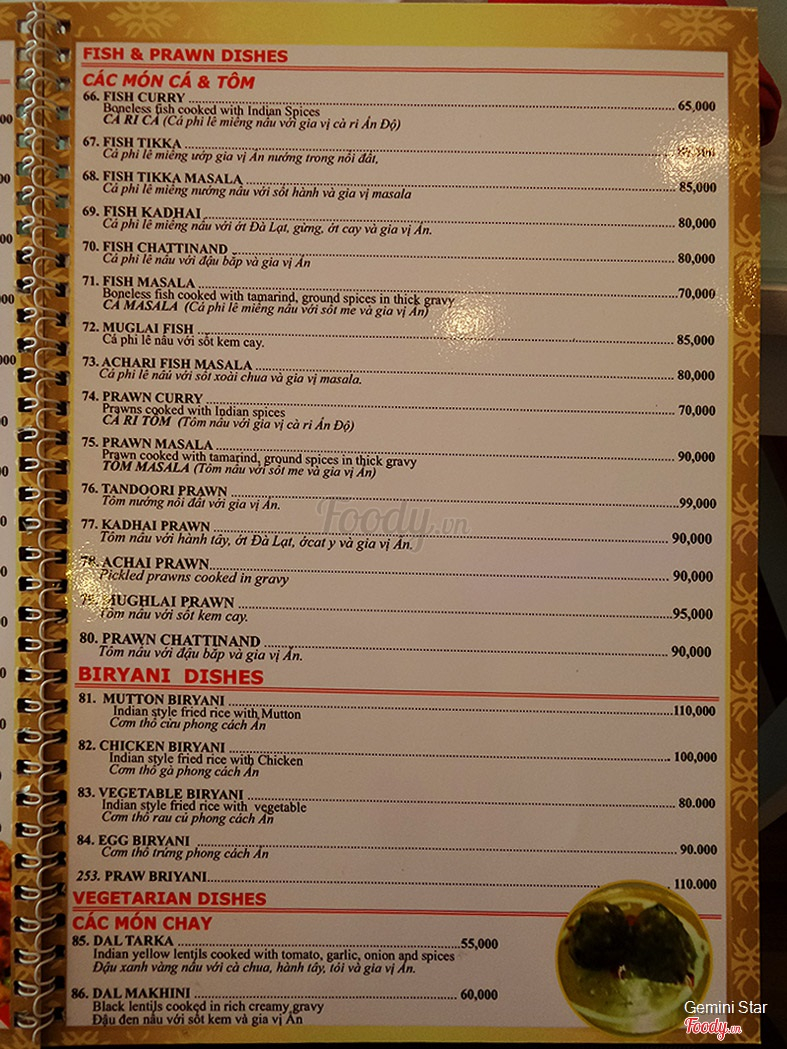 FISH & PRAWN DISHES
CÁC MÓN CÁ & TÔM
66. FISH CURRY 65,000
Boneless fish cooked with Indian Spices
CÀ RI CÁ (Cá phi lê miếng nấu với gia vị cà ri Ấn Độ)
67. FISH TIKKA
Cá phi lê miếng ướp gia vị Ấn nướng trong nồi đất,
68. FISH TIKKA MASALA 85,000
Cá phi lê miếng nướng nấu với sốt hành và gia vị masala
69. FISH KADHAI 80,000
Cá phi lê miếng nấu với ớt Đà Lạt, gừng, ớt cay và gia vị Ấn.
70. FISH CHATTINAND 80,000
Cá phi lê nấu với đậu bắp và gia vị Ấn
71. FISH MASALA 70,000
Boneless fish cooked with tamarind, ground spices in thick gravy
CÁ MASALA (Cá phi lê miếng nấu với sốt me và gia vị Ấn)
72. MUGLAI FISH 85,000
Cá phi lê nấu với sốt kem cay.
73. ACHARI FISH MASALA 80,000
Cá phi lê nấu với sốt xoài chua và gia vị masala.
74. PRAWN CURRY 70,000
Prawns cooked with Indian spices
CÀ RI TÔM (Tôm nấu với gia vị cà ri Ấn Độ)
75. PRAWN MASALA 90,000
Prawn cooked with tamarind, ground spices in thick gravy
TÔM MASALA (Tôm nấu với sốt me và gia vị Ấn)
76. TANDOORI PRAWN 99,000
Tôm nướng nồi đất với gia vị Ấn.
77. KADHAI PRAWN 90,000
Tôm nấu với hành tây, ớt Đà Lạt, ớcat y và gia vị Ấn.
78. ACHAI PRAWN 90,000
Pickled prawns cooked in gravy
MUGHLAI PRAWN 95,000
Tôm nấu với sốt kem cay.
80. PRAWN CHATTINAND 90,000
Tôm nấu với đậu bắp và gia vị Ấn.
BIRYANI DISHES
81. MUTTON BIRYANI 110,000
Indian style fried rice with Mutton
Cơm thố cừu phong cách Ấn
82. CHICKEN BIRYANI 100,000
Indian style fried rice with Chicken
Cơm thố gà phong cách Ấn
83. VEGETABLE BIRYANI 80.000
Indian style fried rice with vegetable
Cơm thố rau củ phong cách Ấn
84. EGG BIRYANI 90.000
Cơm thố trứng phong cách Ấn
253. PRAW BRIYANI 110.000
VEGETARIAN DISHES
CÁC MÓN CHAY
85. DAL TARKA 55,000
Indian yellow lentils cooked with tomato, garlic, onion and spices
Đậu xanh vàng nấu với cà chua, hành tây, tỏi và gia vị Ấn.
86. DAL MAKHINI 60,000
Black lentils cooked in rich creamy gravy
Đậu đen nấu với sốt kem và gia vị Ấn
Foody.vn
Gemini Star
Foody.vn